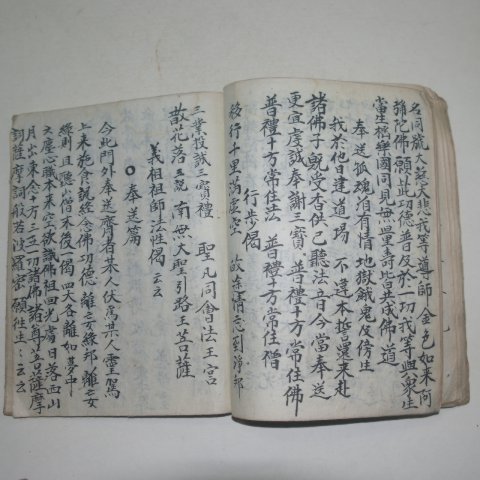 名同號大慈大悲我等導師金色如來阿
彌陀佛願此功德普及於一切我等與衆生
當生極樂國同見無量壽皆共成佛道
奉送孤魂洎有情地獄餓鬼及傍生
我於他日建道場不違本誓還來赴
諸佛子旣受香供已聽法音今當奉送
更宜虔誠奉謝三寶普禮十方常住佛
普禮十方常住法普禮十方常住僧
行步偈
移行千里滿虛空故途情忘到淨邦
三業投誠三寶禮聖凡同會法王宮
散花落三說南無大聖引路王菩薩
義相祖師法性偈云云
○奉送篇
今此門外奉送齋者某人伏爲某人靈駕
上來施食諷經念佛功德離妄緣邪離妄
緣則且聽山僧末後一偈四大各離如夢中
六塵心識本來空欲識佛祖回光處日落西山
月出東念十方三世一切諸佛諸尊菩薩摩
訶薩摩訶般若波羅蜜願往生云云